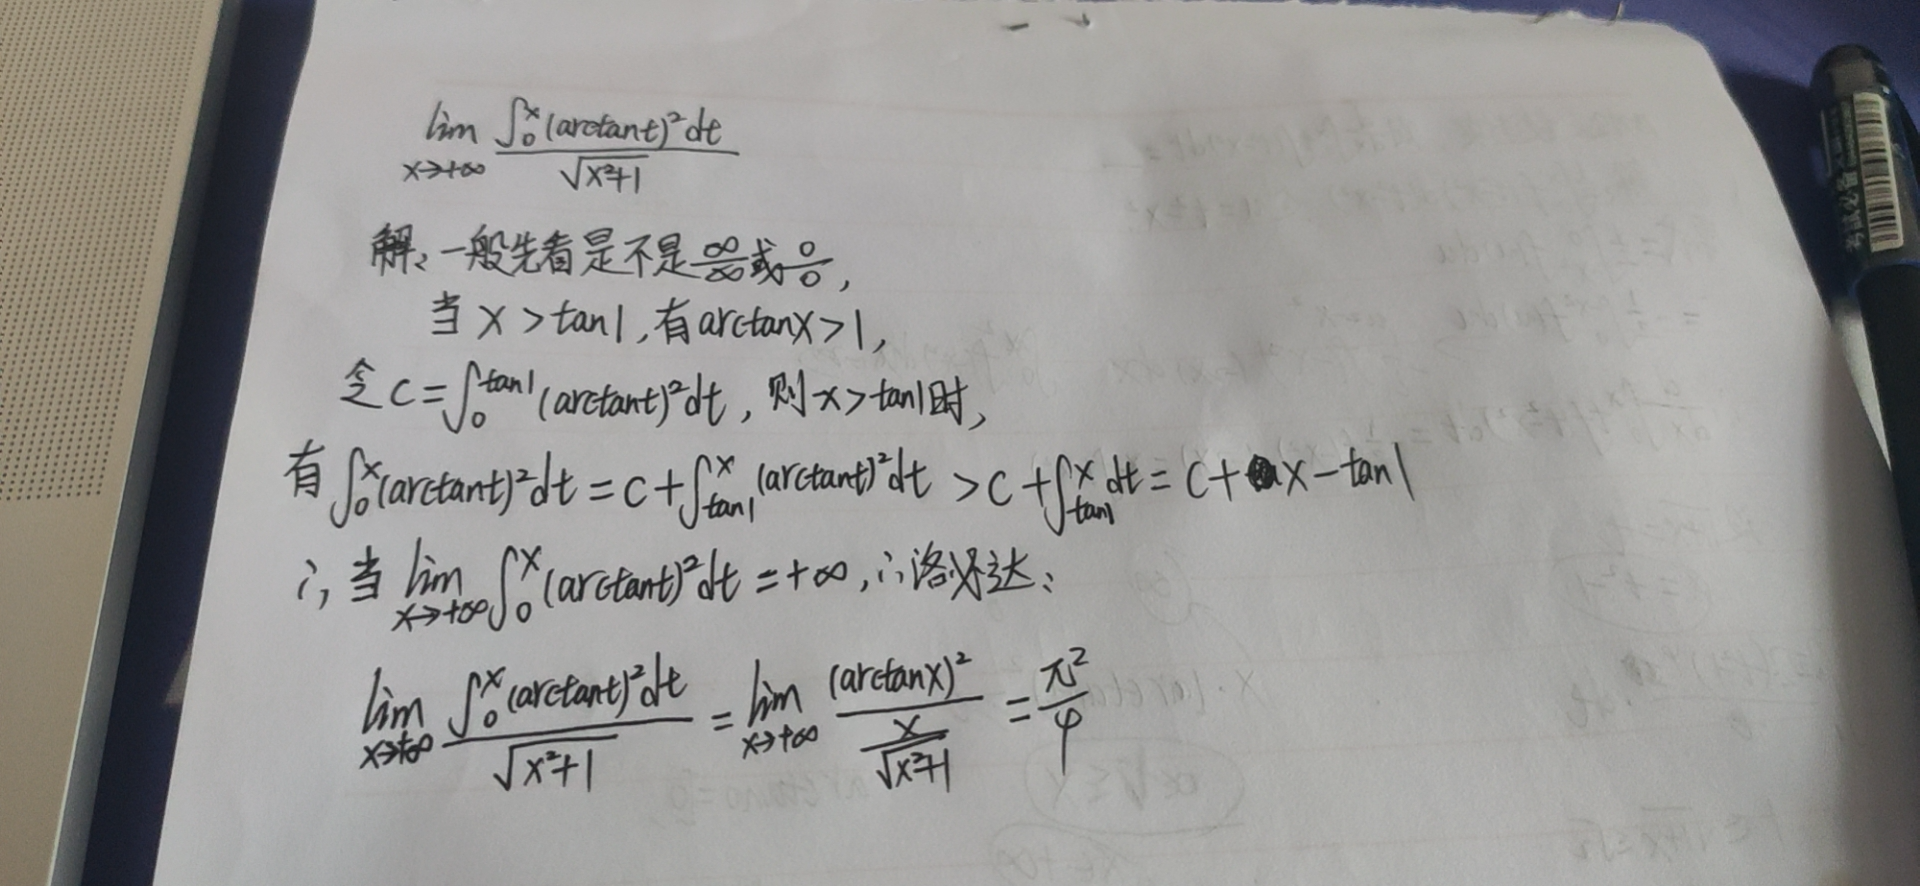 lim x→+∞ ∫₀ˣ(arctant)²dt / √(x²+1)
解: 一般先看是不是 ∞/∞ 或 0/0,
当 x>tan1, 有 arctanx>1,
令 C=∫₀^{tan1}(arctant)²dt, 则 x>tan1时,
有 ∫₀ˣ(arctant)²dt = C+∫_{tan1}^x (arctant)²dt > C+∫_{tan1}^x dt = C+x-tan1
∴ 当 lim x→+∞ ∫₀ˣ(arctant)²dt = +∞, ∴洛必达:
lim x→+∞ ∫₀ˣ(arctant)²dt / √(x²+1) = lim x→+∞ (arctanx)² / (x/√(x²+1)) = π²/4